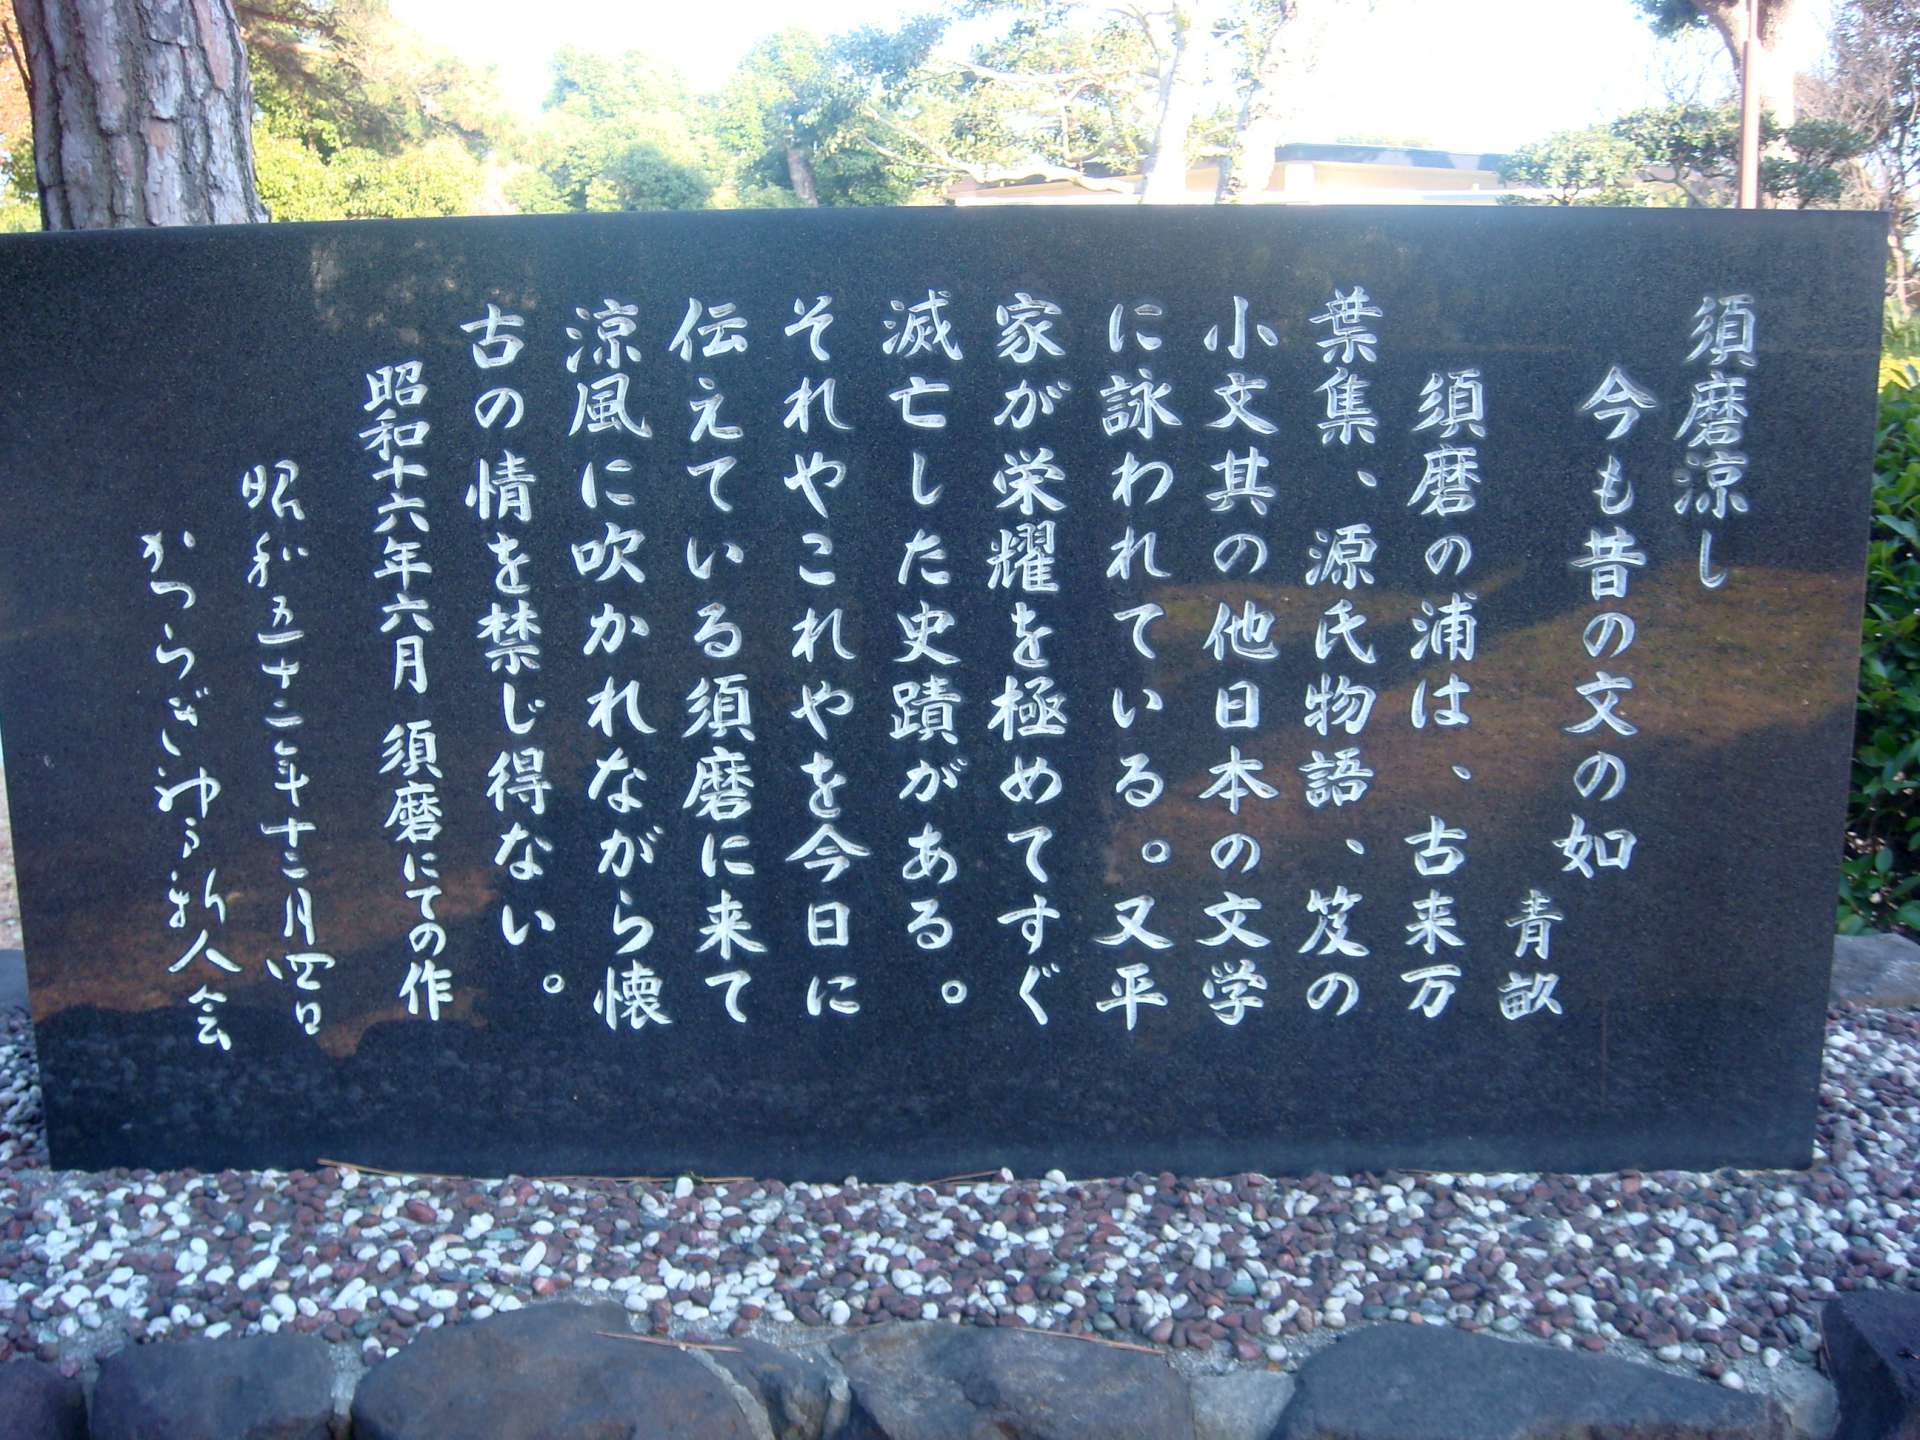 須磨涼し
今も昔の文の如
青畝
須磨の浦は、古来万
葉集、源氏物語、笈の
小文其の他日本の文学
に詠われている。又平
家が栄耀を極めてすぐ
滅亡した史蹟がある。
それやこれやを今日に
伝えている須磨に来て
涼風に吹かれながら懐
古の情を禁じ得ない。
昭和十六年六月 須磨にての作
昭和五十二年十二月四日
かつらぎ神戸新人会